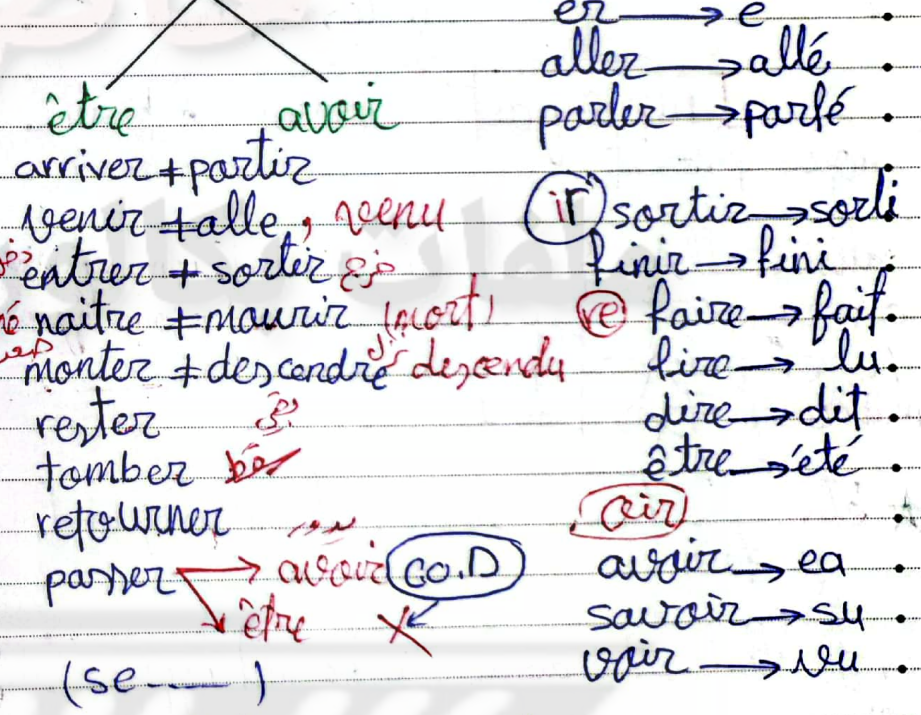 être avoir
arriver ≠ partir
venir ≠ alle, venu
entrer ≠ sortir خرج
naitre ≠ mourir (mort)
monter ≠ descendre descendu
rester
tomber
retourner
passer → avoir co.D
être X
(se ---- )
er → e
aller → allé
parler → parlé
ir sortir → sorti
finir → fini
re faire → fait
lire → lu
dire → dit
être → été
oir
avoir → ea
savoir → su
voir → vu